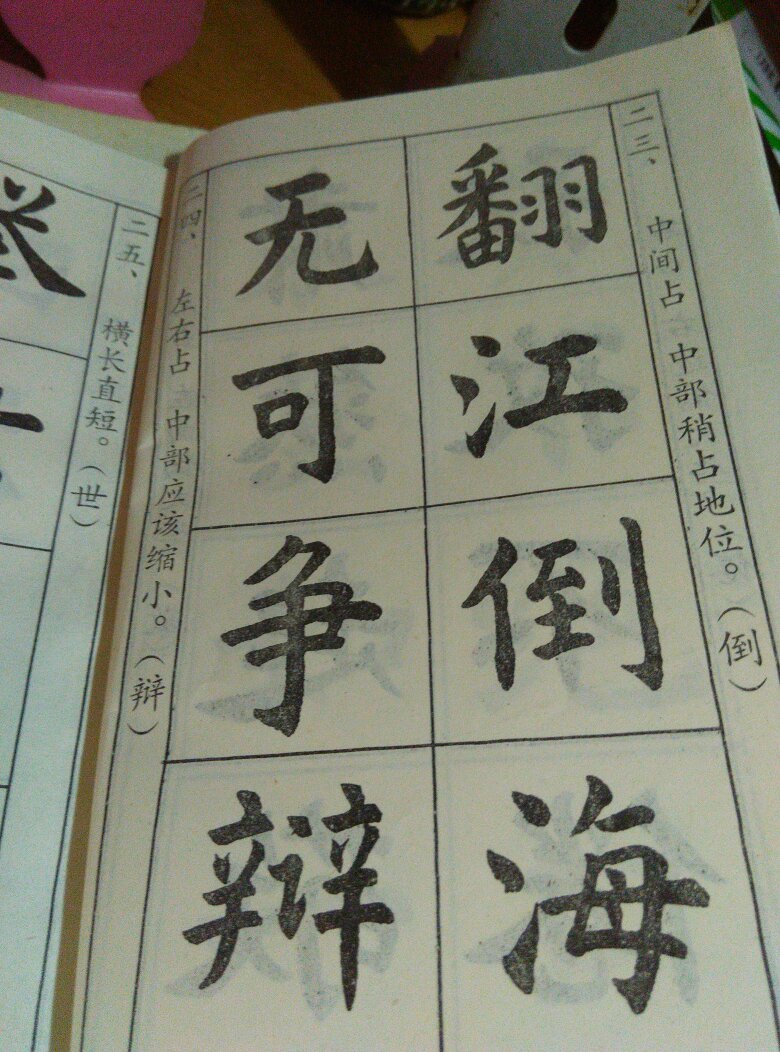 二三、中间占中部稍占地位。（倒）
翻江倒海
无可争辩
二四、左右占中部应该缩小。（辩）
二五、横长直短。（世）